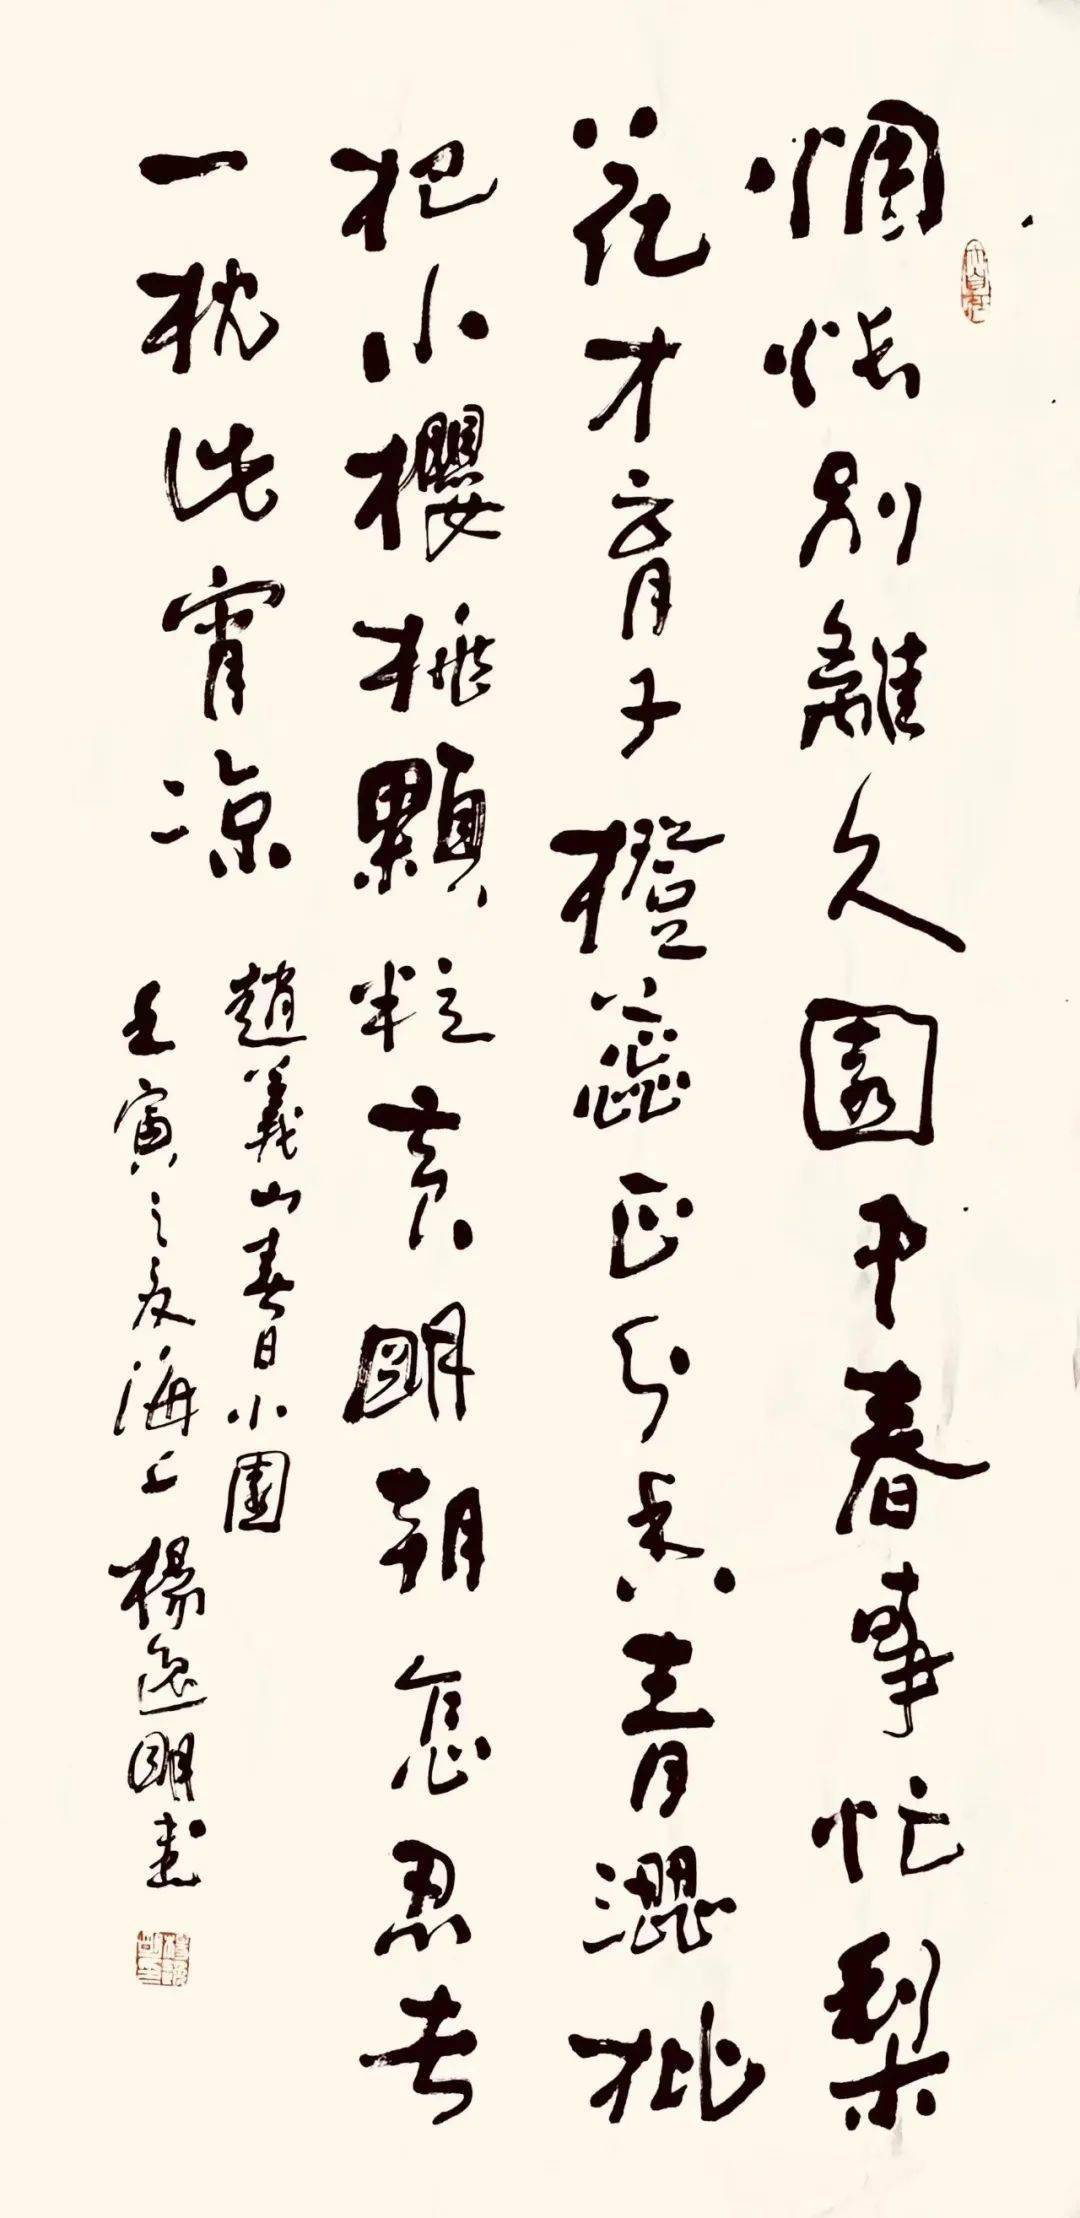 惆悵別離久園中春事忙梨
花才育子橙蕊正分香青澀枇
杷小櫻桃顆粒黄明朝怎忍去
一枕此宵凉
趙義山春日小園
壬寅之夏海上楊逸明書